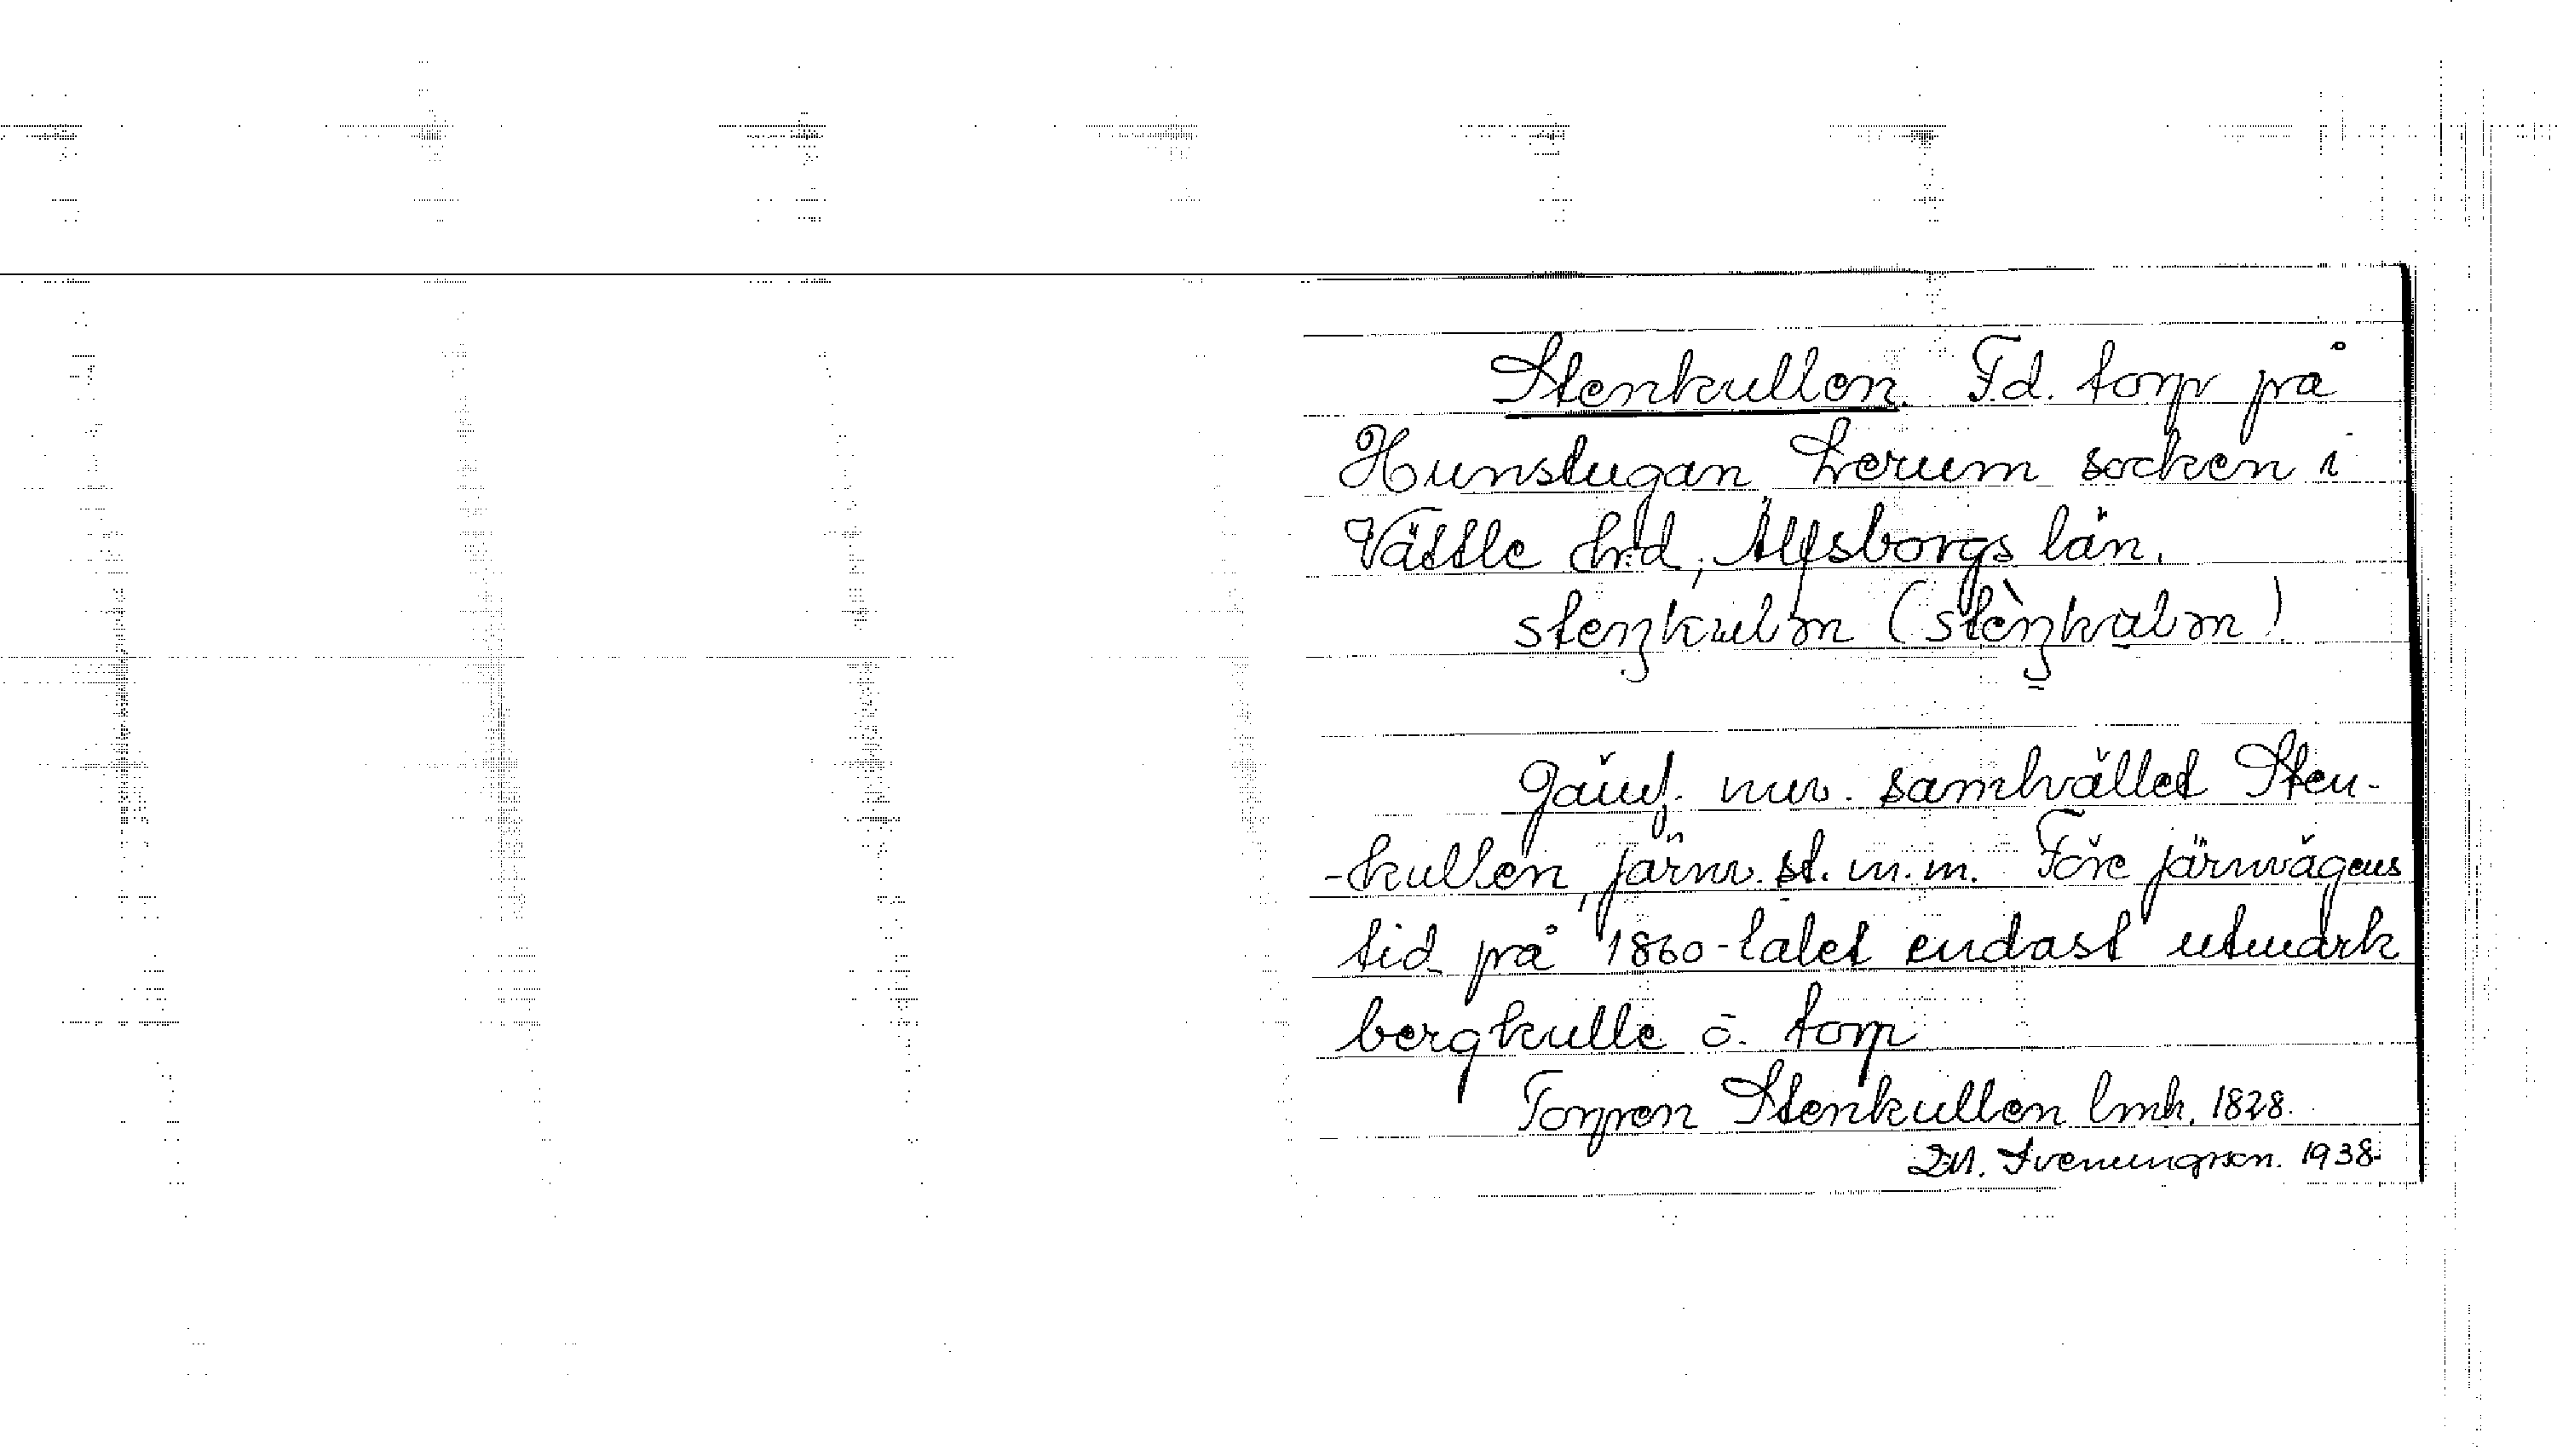 Stenkullen. F.d. torp på
Hunstugan, Lerum socken i
Vättle hd, Älfsborgs län.
Jämf. nuv. samhället Sten-
-kullen, järnv. st. m.m. Före järnvägens
tid på 1860-talet endast utmark
bergkulle o. torp
Torpen Stenkullen lmh. 1828.
D.M. Svenungsson. 1938.